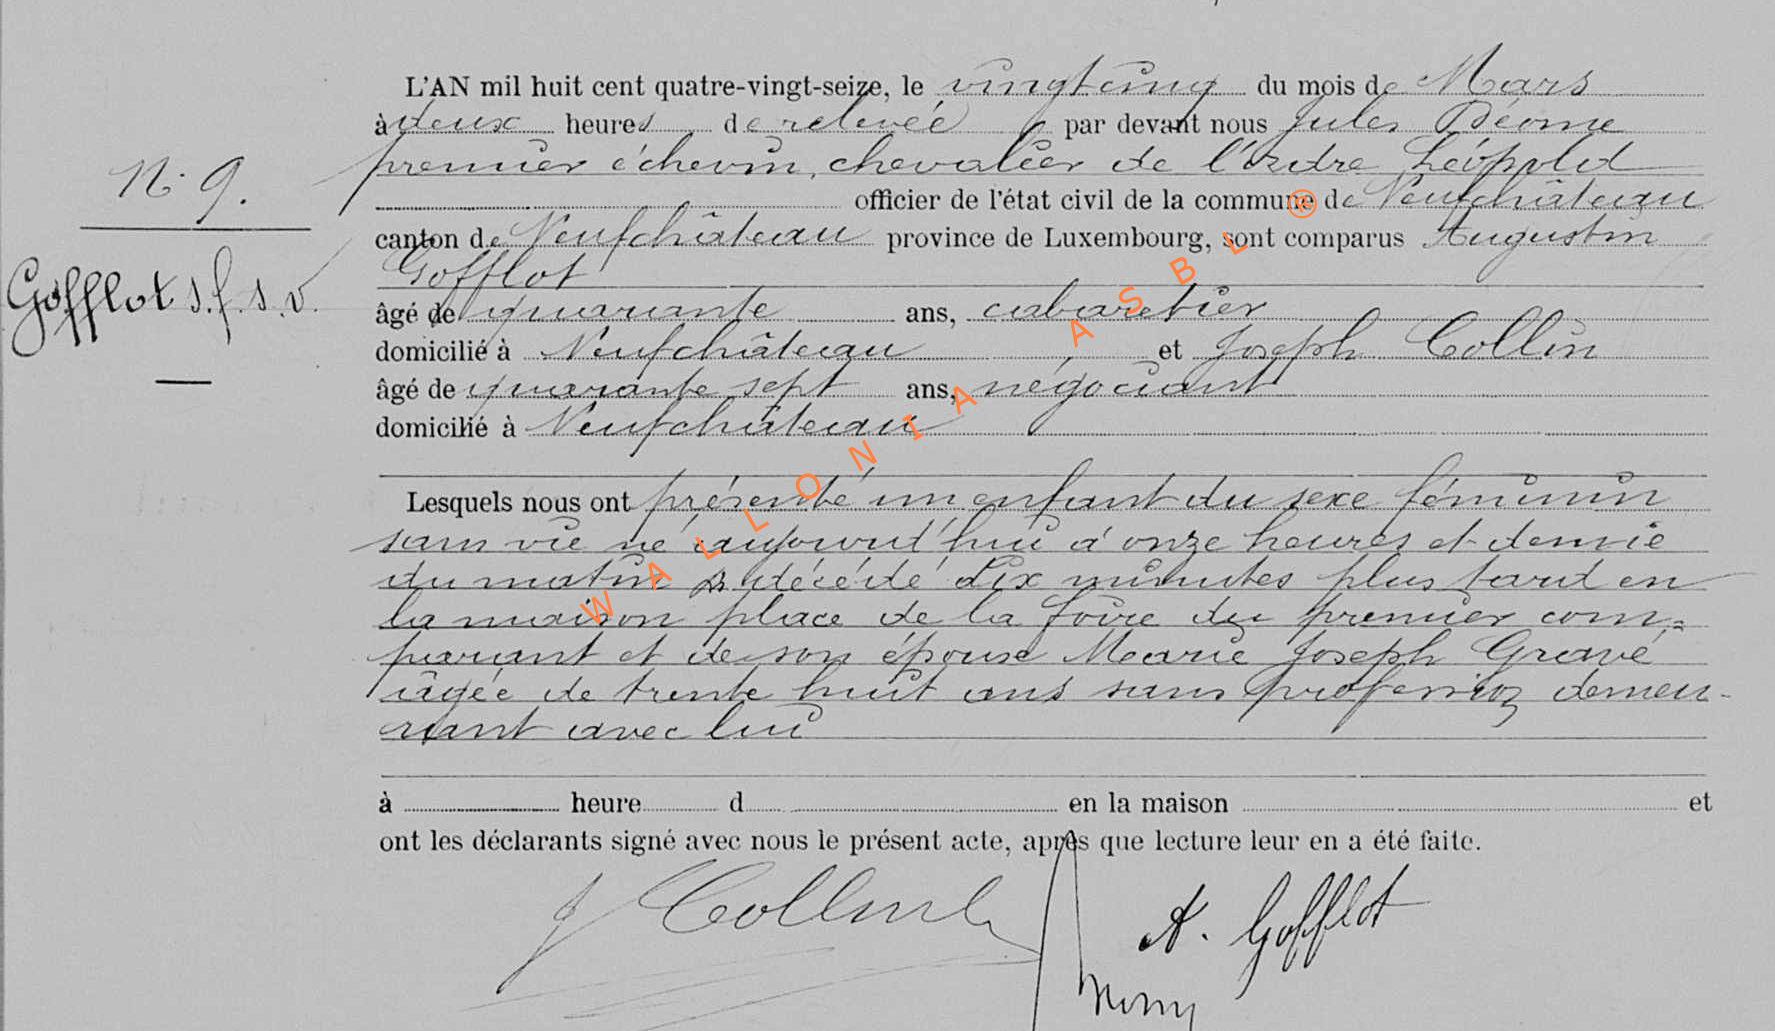 L'AN mil huit cent quatre-vingt-seize, le vingtcinq du mois de Mars
à deux heures de relevée par devant nous Jules Péome
premier échevin, chevalier de l'Ordre Léopold
N. 9.
officier de l'état civil de la commune de Neufchâteau
canton de Neufchâteau province de Luxembourg, sont comparus Augustin
Gofflot
Gofflot s. f. s. v.
âgé de quarante ans, cabaretier
domicilié à Neufchâteau et Joseph Collin
âgé de quarante sept ans, négociant
domicilié à Neufchâteau
Lesquels nous ont présenté un enfant du sexe féminin
sans vie né aujourd'hui à onze heures et demie
du matin décédé dix minutes plus tard en
la maison place de la foire du premier com=
parant et de son épouse Marie Joseph Gravé
âgée de trente huit ans sans profession demeu-
rant avec lui
à heure d en la maison et
ont les déclarants signé avec nous le présent acte, après que lecture leur en a été faite.
J Collin
A. Gofflot
WALLONIA ASBL ®